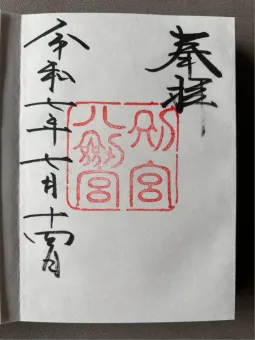 奉拝
別宮
八劔宮
令和七年七月十四日